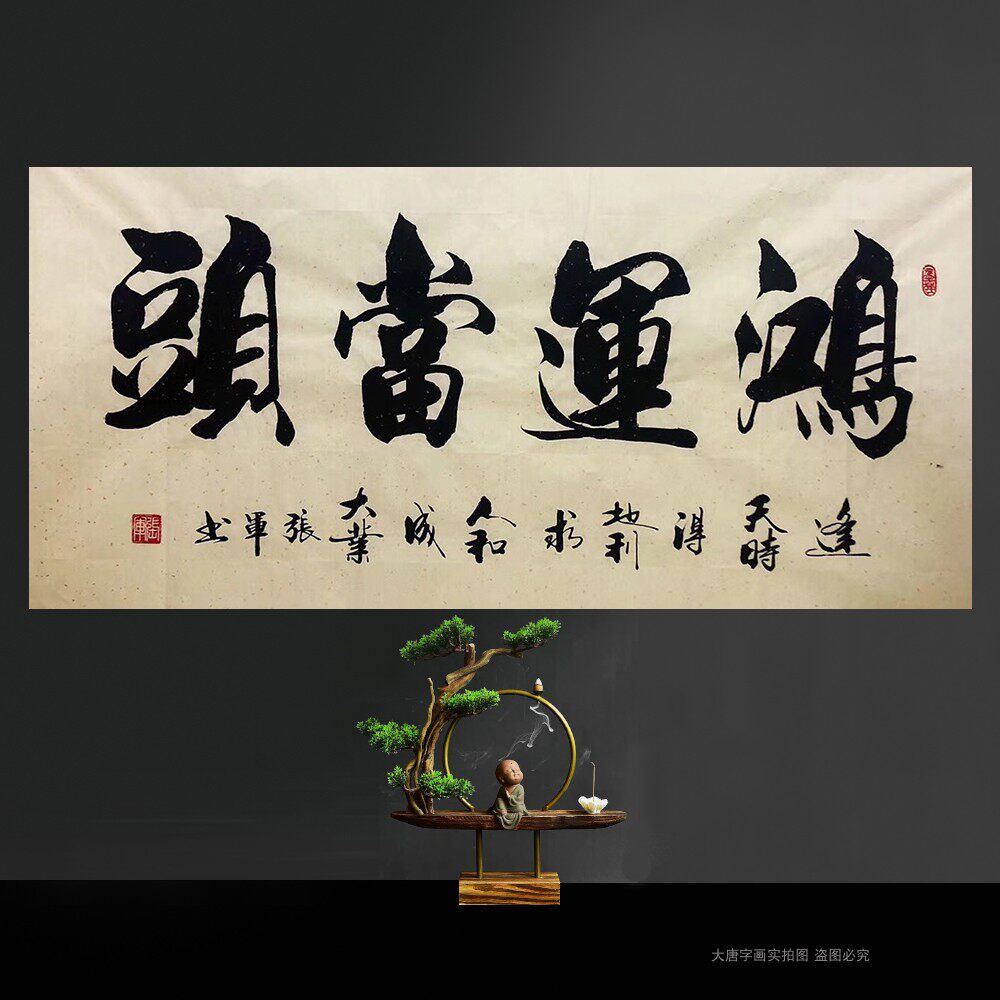 鴻運當頭
逢天時得地利求人和成大業張軍书
張軍
大唐字画实拍图 盗图必究